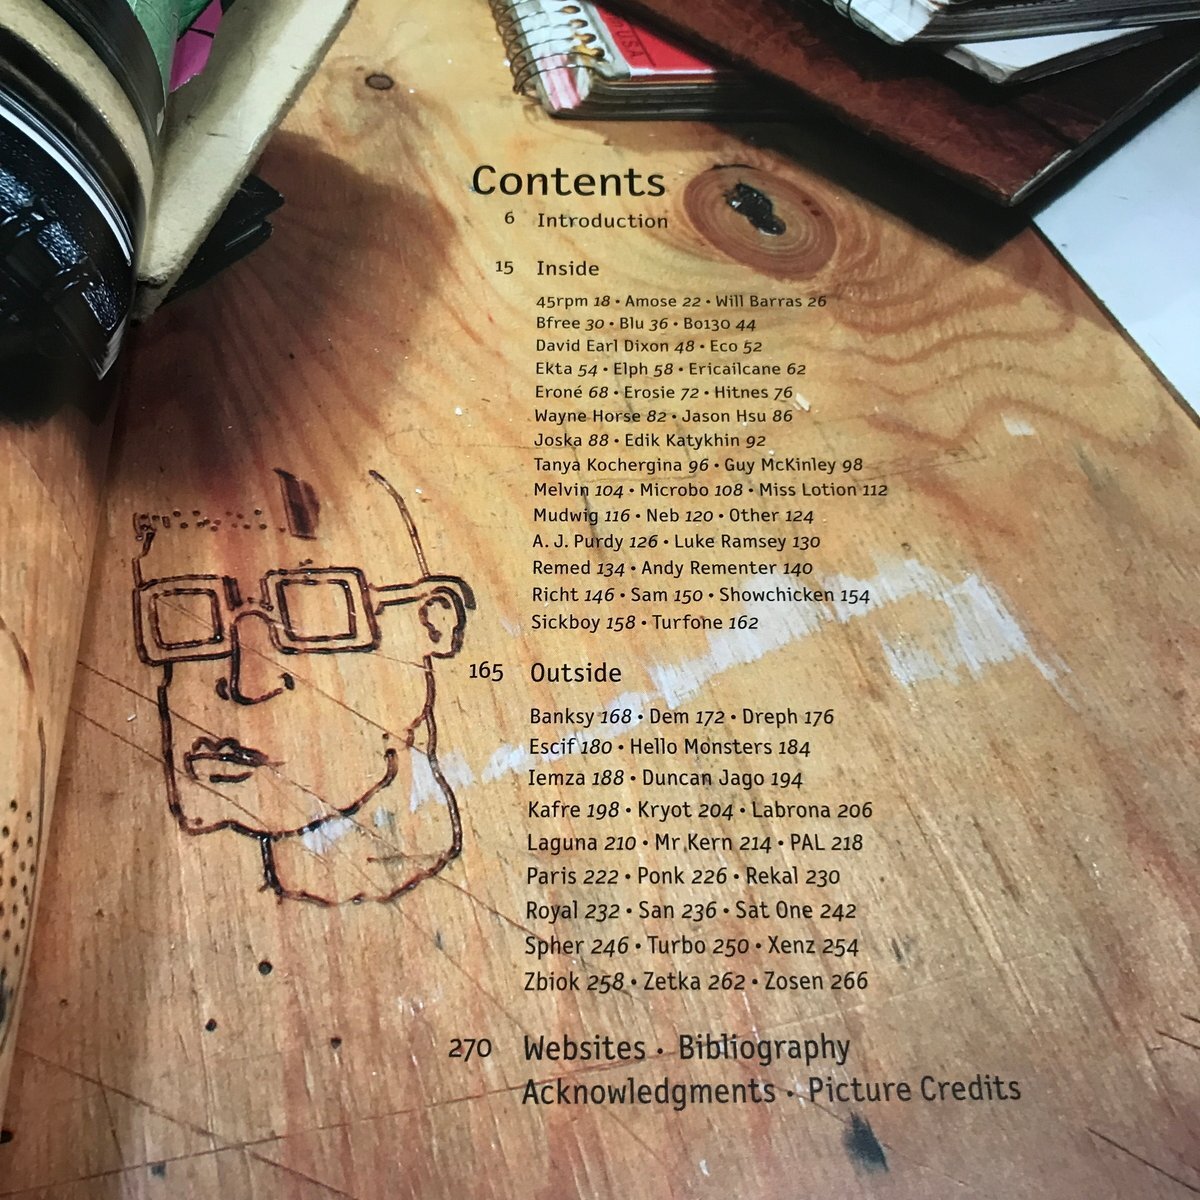 USA
Contents
6 Introduction
15 Inside
45rpm 18 • Amose 22 • Will Barras 26
Bfree 30 • Blu 36 • Bo130 44
David Earl Dixon 48 • Eco 52
Ekta 54 • Elph 58 • Ericailcane 62
Eroné 68 • Erosie 72 • Hitnes 76
Wayne Horse 82 • Jason Hsu 86
Joska 88 • Edik Katykhin 92
Tanya Kochergina 96 • Guy McKinley 98
Melvin 104 • Microbo 108 • Miss Lotion 112
Mudwig 116 • Neb 120 • Other 124
A. J. Purdy 126 • Luke Ramsey 130
Remed 134 • Andy Rementer 140
Richt 146 • Sam 150 • Showchicken 154
Sickboy 158 • Turfone 162
165 Outside
Banksy 168 • Dem 172 • Dreph 176
Escif 180 • Hello Monsters 184
Iemza 188 • Duncan Jago 194
Kafre 198 • Kryot 204 • Labrona 206
Laguna 210 • Mr Kern 214 • PAL 218
Paris 222 • Ponk 226 • Rekal 230
Royal 232 • San 236 • Sat One 242
Spher 246 • Turbo 250 • Xenz 254
Zbiok 258 • Zetka 262 • Zosen 266
270 Websites • Bibliography
Acknowledgments • Picture Credits